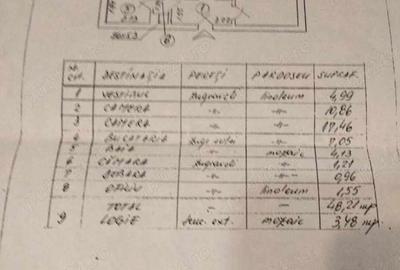 NR. CRT. DESTINAȚIA PEREȚI PARDOSELI SUPRAF.
1 VESTIBUL linoleum 4,99
2 CAMERA -"- -"- 10,86
3 CAMERA -"- -"- 17,46
4 BUCATARIA -"- 7,05
5 BAIA -"- mozaic 4,13
6 CĂMARA -"- 1,21
7 DEBARA -"- -"- 0,96
8 OFICIU -"- linoleum 1,55
TOTAL - - 48,21 mp
9 LOGIE ext. mozaic 3,48 mp